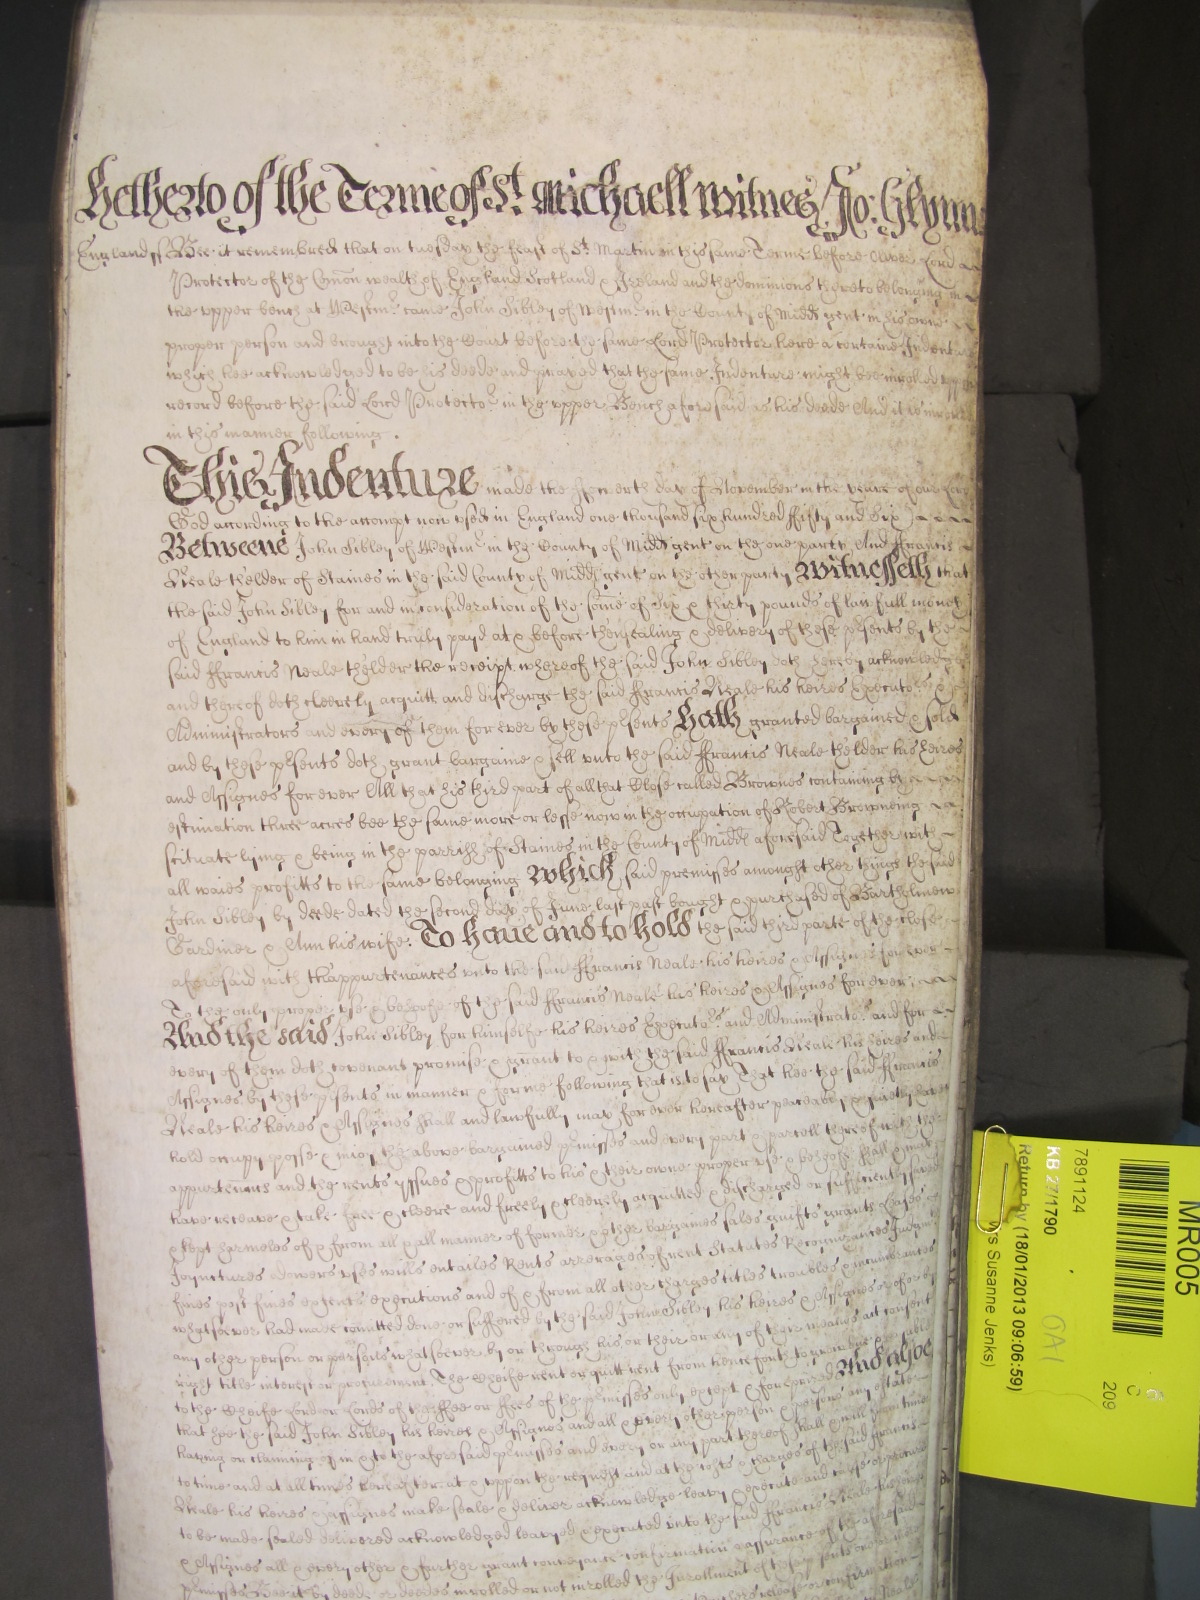 Hetherto of the Terme of St. Michaell Witnes / Jo: Glynn
England ss Bee it remembred that on tuesday the feast of St. Martin in this same Terme before Oliver Lord
Protector of the Comon wealth of England Scotland & Ireland and the dominions thereto belonging in
the upper bench at Westmr. came John Sibley of Westmr. in the County of Midd gent in his owne
proper person and brought into the Court before the same Lord Protector here a certaine Indenture
which hee acknowledged to be his deede and prayed that the same Indenture might bee inrolled upon
record before the said Lord Protector in the upper Bench aforesaid as his deede And it is inrolled
in this manner following.
This Indenture made the fowerth day of November in the yeare of our Lord
God according to the accompt now used in England one thousand six hundred fifty and Six
Betweene John Sibley of Westmr. in the County of Midd gent on the one party And ffrancis
Neale thelder of Staines in the said County of Midd gent on the other party Witnesseth that
the said John Sibley for and in consideration of the some of Six & thirty pounds of lawfull money
of England to him in hand truly payd at & before thensealing & delivery of these psents by the
said ffrancis Neale thelder the receipt whereof the said John Sibley doth hereby acknowledge
and thereof doth cleerely acquitt and discharge the said ffrancis Neale his heires Executors &
Administrators and every of them for ever by these psents Hath granted bargained & sold
and by these psents doth grant bargaine & sell unto the said ffrancis Neale thelder his heires
and Assignes for ever All that his third part of all that Close called Brownes containing by
estimation three acres bee the same more or lesse now in the occupation of Robert Browneing
scituate lying & being in the parrish of Staines in the County of Midd aforesaid Together with
all waies profitts to the same belonging Which said premisses amonght other things the said
John Sibley by deede dated the second day of June last past bought & purchased of Bartholmew
Gardiner & Ann his wife: To have and to hold the said third parte of the close
aforesaid with thappurtenances unto the said ffrancis Neale his heires & Assignes for ever
To the only proper use & behoofe of the said ffrancis Neale his heires & Assignes for ever
And the said John Sibley for himselfe his heires Executors. and Administrators. and for
every of them doth covenant promise & grant to & with the said ffrancis Neale his heires and
Assignes by these psents in manner & forme following that is to say That hee the said ffrancis
Neale his heires & Assignes shall and lawfully may for ever hereafter peaceably & quietly have
hold occupy posse & enioy the above bargained pmisses and every part & parcell thereof with the
appurtenncs and the rents yssues & profitts to his & their owne proper use & behoofe shall & may
have receave & take free & cleere and freely & cleerely acquitted & discharged or sufficiently saved
& kept harmeles of & from all & all manner of former & other bargaines sales guifts grants Leases
Joynctures dowers uses wills entailes Rents arrerages of rent Statutes Recognizances Judgmts
fines post fines extents executions and of & from all other charges titles troubles & incumbrances
whatsoever had made comitted done or suffered by the said John Sibley his heires & Assignes or of or by
any other person or persons whatsoever by or through his or their or any of their meanes act consent
right title interest or procurement. The Cheife rent or quitt rent from henceforth to grow due & payable
to the Cheife Lord or Lords of the ffee or ffees of the pmisses only except & foreprized And alsoe
that hee the said John Sibley his heires & Assignes and all & every other person & persons any estate
having or claiming of in & to the aforesaid pmisses and every or any part thereof shall & will from time
to time and at all times hereafter at & uppon the request and at the costs & charges of the said ffrancis
Neale his heires & Assignes make seale & deliver acknowledge leavy & execute and cause & procure
to be made sealed delivered acknowledged leavyed & executed unto the said ffrancis Neale his heires
& Assignes all & every other & further grant conveyance confirmation & assurance of the aforesaid
pmisses Bee it by deede or deedes inrolled or not inrolled the Inrollment of these psents
release or confirmation
MR005
7891124
KB 27/1790
Return by (18/01/2013 09:06:59)
Susanne Jenks)
209